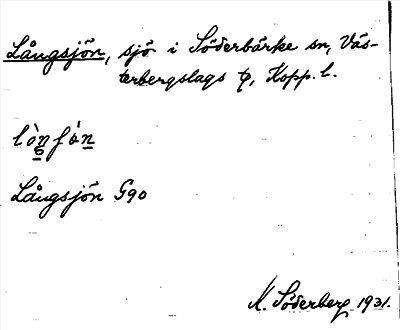 Långsjön, sjö i Söderbärke sn, Väs-
terbergslags tg, Kopp. l.
Långsjön G90
M. Söderberg 1931.